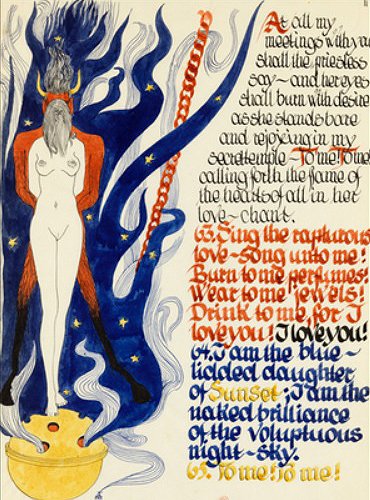 At all my
meetings with you
shall the priestess
say~ and her eyes
shall burn with desire
as she stands bare
and rejoicing in my
secret temple ~ To me! To me!
calling forth the flame of
the hearts of all in her
love~chant.
63. Sing the rapturous
love~song unto me!
Burn to me perfumes!
Wear to me jewels!
Drink to me, for I
love you! I love you!
64. I am the blue~
lidded daughter
of Sunset; I am the
naked brilliance
of the voluptuous
night~sky.
65. To me! To me!